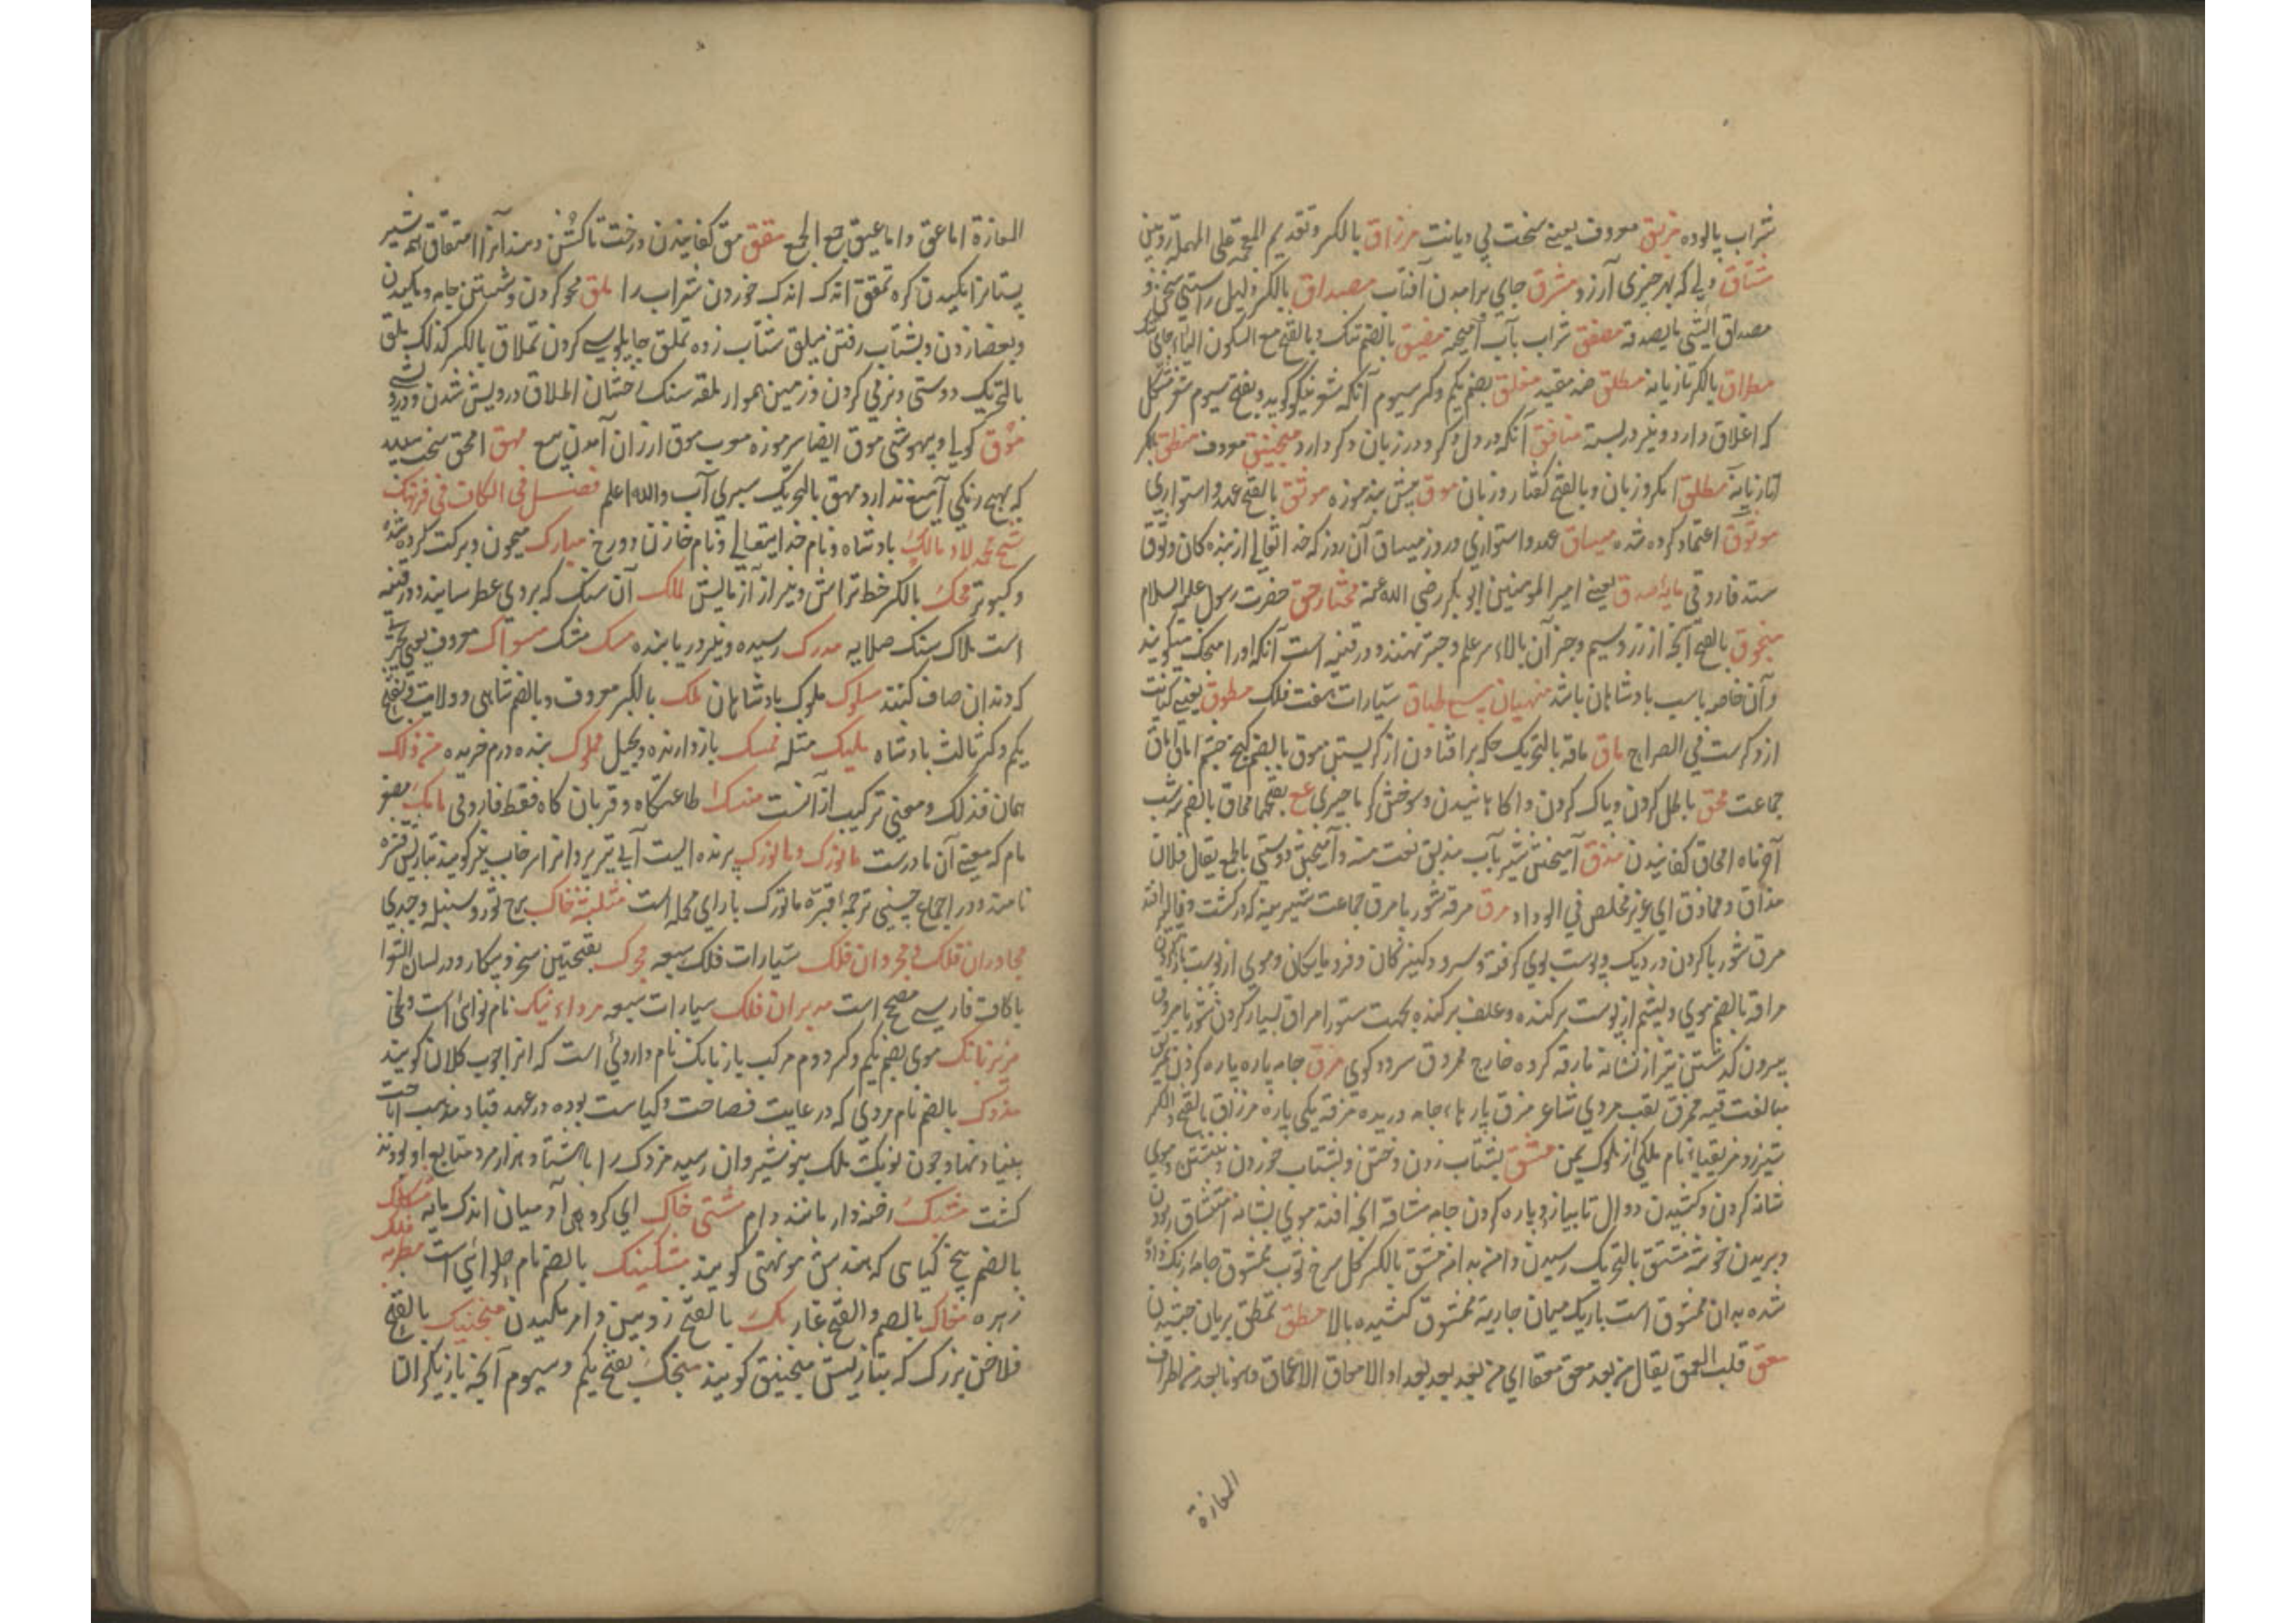 شراب پالوده مزیق معروف یعنے سخت بی دیانت مرزاق بالکسر وتقدیم المعجمة علی المهملة روبین
مشتاق ولی که بهر چیزی آرزو مشرق جای برآمدن آفتاب مصداق بالکسر دلیل راستی سخن و
مصداق الشی ما یصدقه مصفق شراب بآب آمیخته مضیق بالضم تنک و بالفتح مع السکون الیاء جای تنک
مطراق بالکسر تازیانه مطلق ضد مقید مفلق بضم یکم وکسر سیوم آنکه شعر نیکو کوید وبفتح سیوم شعر مشکل
که اغلاق دارد ونیز دربسته منافق آنکه در دل دکر و در زبان دکر دارد منجنیق معروف منطق بکسر
تازیانه مطلق وبالفتح کفتار وزبان موق پیش بند موزه موثق بالفتح عهد واستواری
موثوق اعتماد کرده شده میساق عهد واستواری وروز میساق آن روز که خدا تعالی از بنده کان وثوق
ستد فاروقی مایهٔ صدق یعنے امیر المومنین ابو بکر رضی الله عنه مختار حق حضرت رسول علیه السلام
منجوق بالفتح آنچه از زر وسیم وجز آن بالاء سر علم وچتر نهند ودر قنیه است آنکه اورا منجک میکویند
وآن خاصه باسب بادشاهان باشد منهیان سبع طباق سیارات هفت فلک مطوق یعنے
از وکرست فی الصراح ماق ماقه بالتحریک برافتادن از کریستن موق بالضم کنج چشم
جماعت محق باطل کردن وپاک کردن وا کاهانیدن وسوختن کرما چیزی مع بفتحها محاق بالضم سه شب
آخر ماه امحاق کفانیدن مذق آمیختن شیر بآب مذیق نعت منه وآمیختن دوستی باطمع یقال فلان
مذاق ومماذق ای غیر مخلص فی الوداد مرق مرقه شوربا مرق جماعت
مرق شوربا کردن در دیک وپوست بوی کرفته وسرود کنیزکان وفرومایکان وموی از پوست باز کردن
مراقه بالضم موی ولپشم از پوست برکنده وعلف برکنده بجهت ستور امراق بسیار کردن شوربا مروق
بیرون کذشتن تیر از نشانه مارقه کروه خارج ممروق سرود کوی مزق جامه پاره پاره کردن تمزیق
مبالغت فیه ممزق لقب مردی شاعر مزق پارها جامه دریده مزقه یکی پاره مزراق بالفتح والکسر
تیز رو مزیقیا نام ملکی از ملوک یمن مشق بشتاب زدن ونبشتن وبشتاب خوردن وموی
شانه کردن وکشیدن دوال تا بیازد وپاره کردن جامه مشاقه آنچه افتد موی بشانه امتشاق ربودن
وبریدن خوشه مشق بالتحریک رسیدن دامنه بدامنه مشق بالکسر کل سرخ ثوب ممشوق جامهٔ رنک داده
شده بدان ممشوق است باریک میان جاریة ممشوق کشیده بالا مطق تمطق بزبان چشیدن
معق قلب العمق یقال من بعد معق معقا ای من بعد الامعاق الاعماق
المعازة
المعازة اماعق واماعیق جمع الجمع مقق مق کفانیدن درخت تا کشن دهند آنرا امتقاق همه شیر
پستانرا مکیدن کره تمقق اندک اندک خوردن شراب را ملق محو کردن وشستن جامه ومکیدن
وبعصا زدن وبشتاب رفتن میلق شتاب زده تملق چاپلوسے کردن تملاق بالکسر کذلک ملق
بالتحریک دوستی ونرمی کردن وزمین هموار ملقه سنک رخشان املاق درویش شدن ودرویشے
موق کولی وبیهوشی موق ایضا سر موزه معرب موق ارزان آمدن بیع مهق امهق سخت سپید
که بهیچ رنکی آمیغ ندارد مهق بالتحریک سبزی آب والله اعلم فصل فی الکاف فی فرهنک
شیخ محمد لاد مالک بادشاه ونام خدایتعالی ونام خازن دوزخ مبارک میمون وبرکت کرده شده
وکبوتر محک بالکسر خط تراش ونیز از آزمایش ملک آن سنک که بروی عطر سایند ودر قنیه
است ملاک سنک صلایه مدرک رسیده ونیز دریابنده مسک مشک مسواک معروف یعنی چیزیکه
که دندان صاف کنند سلوک ملوک بادشاهان ملک بالکسر معروف وبالضم شاهی وولایت وبفتح
یکم وکسر ثالث بادشاه ملیک مثله ممسک باز دارنده وبخیل مملوک بنده درم خریده من ذلک
همان فذلک ومعنی ترکیب ازانست منسک طاعتکاه وقربان کاه فقط فاروقی مامک تصغیر
مام که بمعنے آن مادرست مالوزک ومالوزک پرنده ایست آبی تیز پر وانرا سرخاب نیز کویند
نامند ودر اجماع حسینی ترجمهٔ قبره ماتورک بارای مهمله است مثلثهٔ خاک برج ثور وسنبله وجدی
مجاوران فلک ومجردان فلک سیارات فلک سبعه مچرک بفتحتین سخره وبیکار ودر لسان الشعرا
باکاف فارسے مصحح است مدبران فلک سیارات سبعه مرداء نیک نام نوائی است ولحنی
مزیرنانک موی بضم یکم وکسر دوم مرکب باز نانک نام داروئی است که انرا چوب کلان کویند
مزدک بالضم نام مردی که در غایت فصاحت وکیاست بوده در عهد قباد مذهب اباحت
بنیاد نهاد وچون نوبت ملک بنوشیروان رسید مزدک را با هشتاد هزار مرد متابع او بودند
کشت مشبک رخنه دار مانند دام مشتی خاک ای کروهی آدمیان اندک مایه مشکک
بالضم بیخ کیاهی که بهندش موتهی کویند مشکینک بالضم نام حلوائی است مطربه فلک
زهره مغاک بالضم والفتح غار مک بالفتح زوبین وامر مکیدن منجنیک بالفتح
فلاخن بزرک که بتازیش منجنیق کویند منجک بفتح یکم وسیوم آنچه بازیکر التا